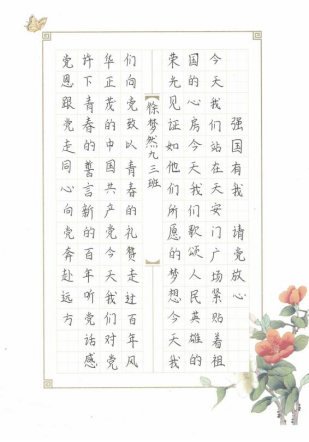 强国有我 请党放心
今天我们站在天安门广场紧贴着祖
国的心房今天我们歌颂人民英雄的
荣光见证如他们所愿的梦想今天我
徐梦然九三班
们向党致以青春的礼赞走过百年风
华正茂的中国共产党今天我们对党
许下青春的誓言新的百年听党话感
党恩跟党走同心向党奔赴远方